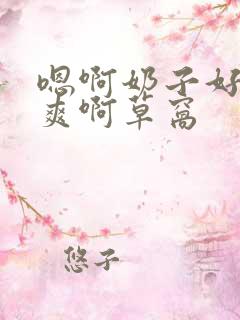 嗯啊奶子好
爽啊草窝
悠子